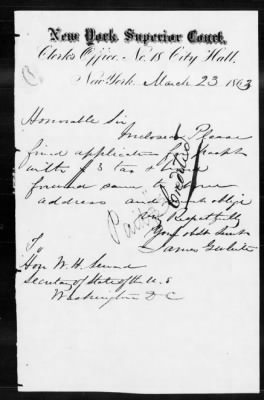 New York Superior Court,
Clerks Office, No. 18 City Hall,
New York, March 23 1863
Honorable Sir
Inclosed Please
find application for
with $3 Tax &
forward same to
address and much oblige
Very Respectfully
Your obdt Servt
James
To
Hon. W. H. Seward
Secretary of State of the U. S
Washington D C